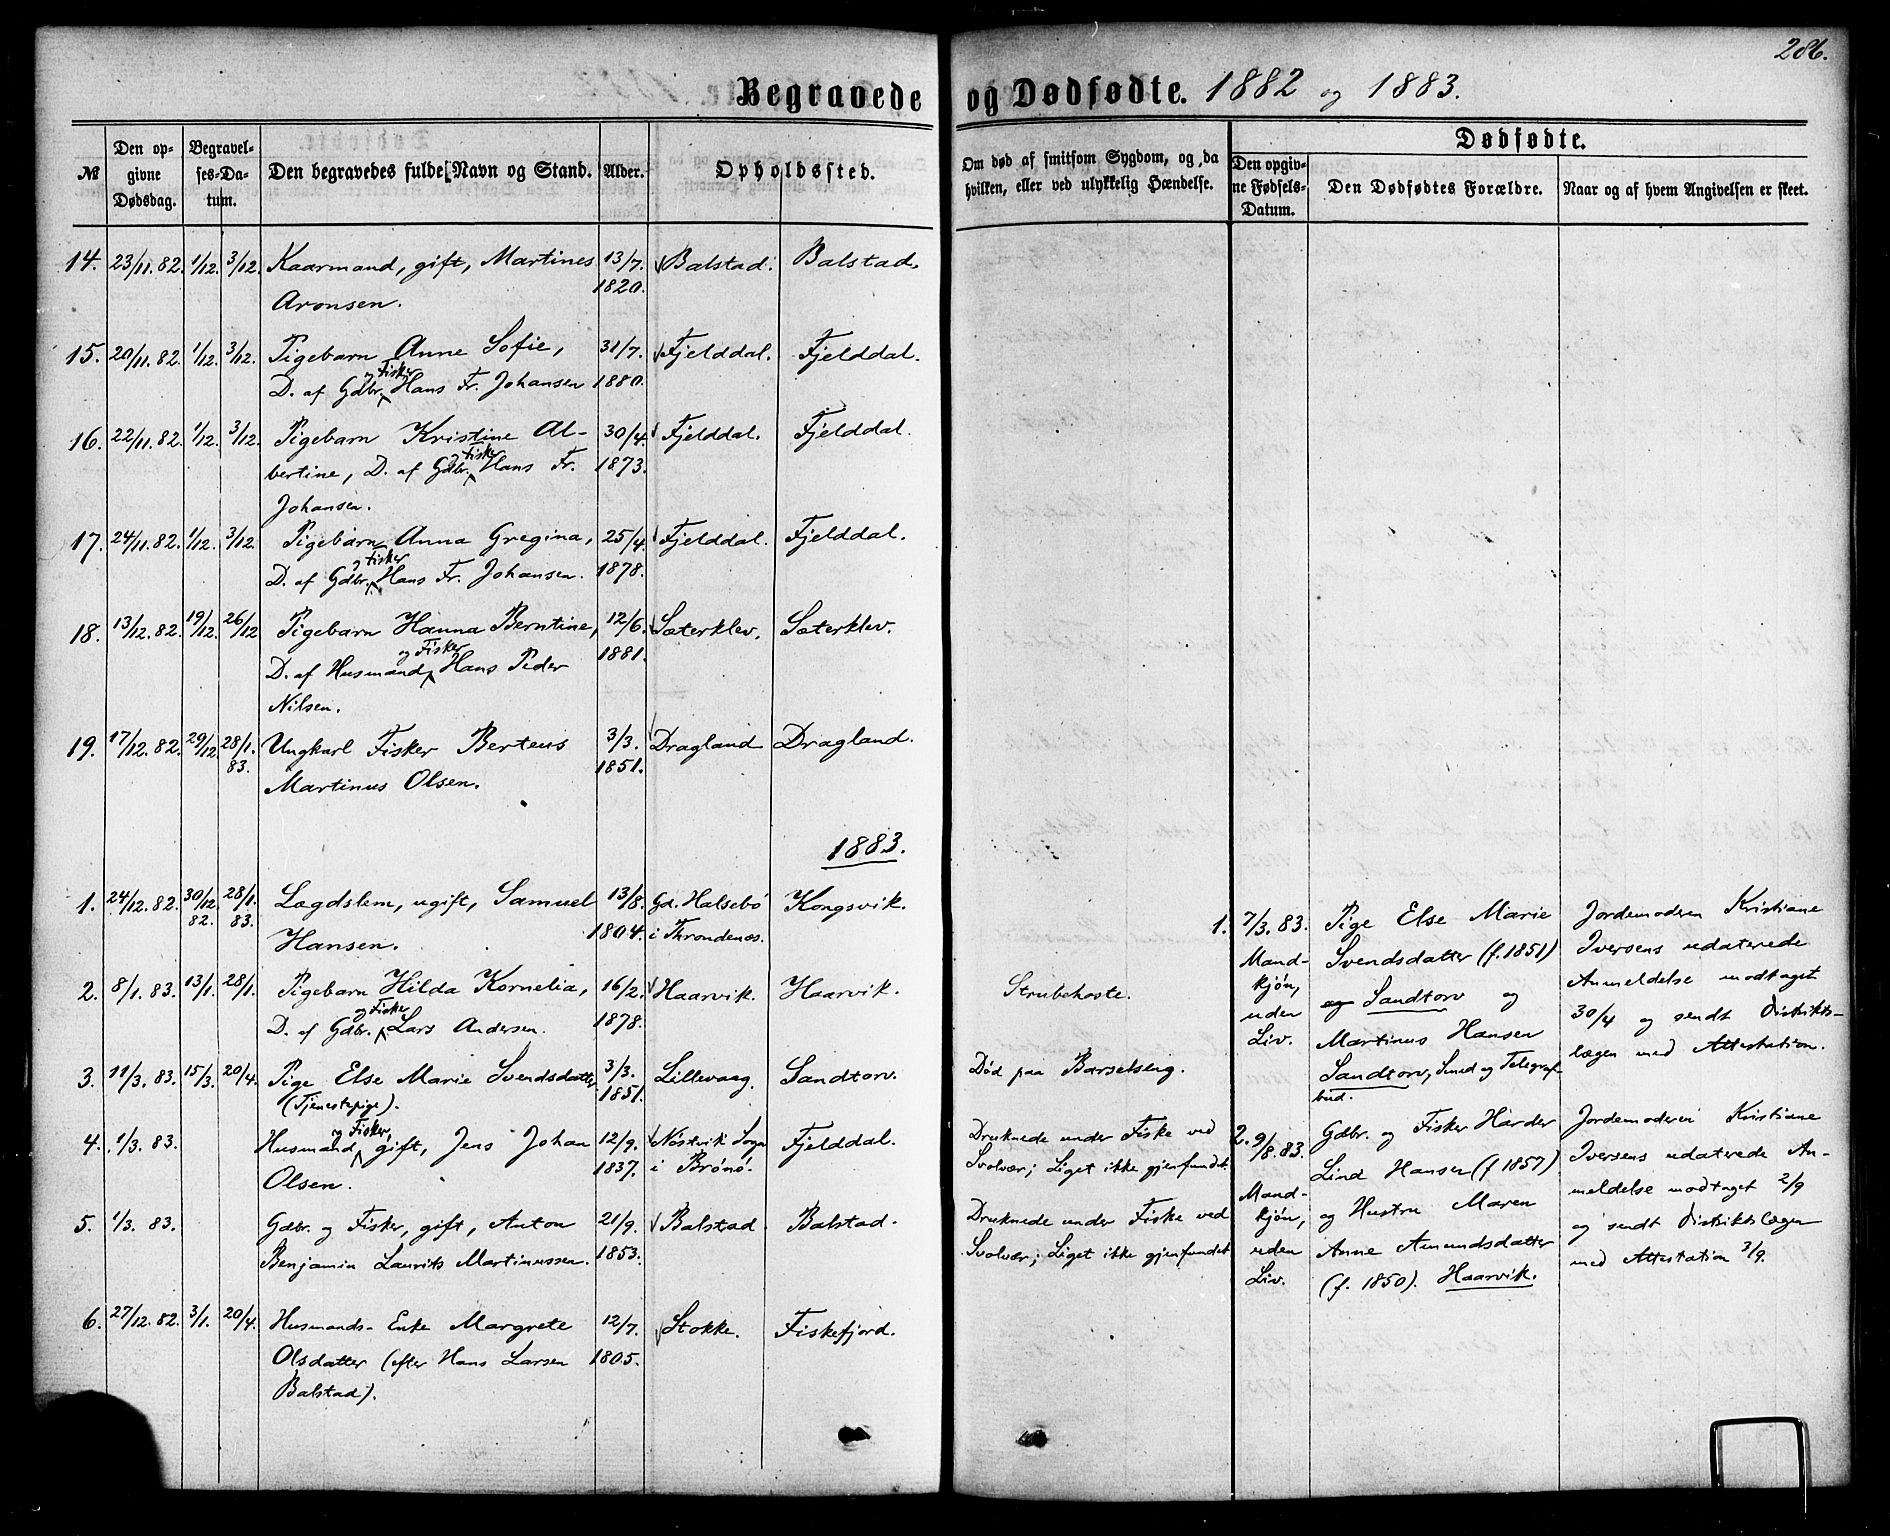 286.
Begravede og Dødfødte. 1882 og 1883.
№
Den opgivne Dødsdag.
Begravelses-Datum.
Den begravedes fulde Navn og Stand.
Alder.
Opholdssted.
Om død af smitsom Sygdom, og da hvilken, eller ved ulykkelig Hændelse.
Dødfødte.
Den opgivne Fødsels-Datum.
Den Dødfødtes Forældre.
Naar og af hvem Angivelsen er skeet.
14. 23/11. 82. 1/12. 3/12. Kaarmand, gift, Martines 13/7. Balstad. Balstad.
Aronsen. 1820.
15. 20/11. 82. 1/12. 3/12. Pigebarn Anne Sofie, 31/7. Fjelddal. Fjelddal.
og Fisker
D. af Gdbr. Hans Fr. Johansen 1880.
16. 22/11. 82. 1/12. 3/12. Pigebarn Kristine Al- 30/4. Fjelddal. Fjelddal.
og Fisker
bertine, D. af Gdbr. Hans Fr. 1873.
Johansen.
17. 24/11. 82. 1/12. 3/12. Pigebarn Anna Gregina, 25/4. Fjelddal. Fjelddal.
og Fisker
D. af Gdbr. Hans Fr. Johansen. 1878.
18. 13/12. 82. 19/12. 26/12 Pigebarn Hanna Berntine, 12/6. Sæterklev. Sæterklev.
og Fisker
D. af Husmand Hans Peder 1881.
Nilsen.
19. 17/12. 82. 29/12. 28/1. 83. Ungkarl Fisker Berteus 3/3. Dragland Dragland.
Martinus Olsen. 1851.
1883.
1. 24/12. 82. 30/12. 82. 28/1. 83. Lægdslem, ugift, Samuel 13/8. Gd. Halsebø Kongsvik.
Hansen. 1804. i Throndenæs.
2. 8/1. 83. 13/1. 28/1. Pigebarn Hilda Kornelia, 16/2. Haarvik. Haarvik. Strubehoste.
og Fisker
D. af Gdbr. Lars Andersen. 1878.
3. 11/3. 83. 15/3. 20/4. Pige Else Marie Svendsdatter 3/3. Lillevaag. Sandtorv. Død paa Barselseng.
(Tjenestepige). 1851.
og Fisker,
4. 1/3. 83. Husmand gift, Jens Johan 12/9. Nøstvik Sogn Fjelddal. Druknede under Fiske ved
Olsen. 1837. i Brønø. Svolvær; Liget ikke gjenfundet.
5. 1/3. 83. Gdbr. og Fisker, gift, Anton 21/9. Balstad Balstad. Druknede under Fiske ved
Benjamin Laurits Martinussen. 1853. Svolvær; Liget ikke gjenfundet
6. 27/12. 82. 3/1. 20/4. Husmands-Enke Margrete 12/7. Stokke. Fiskefjord.
Olsdatter (efter Hans Larsen 1805.
Balstad).
1. 7/3. 83.
Mand-
kjøn,
uden
Liv.
Pige Else Marie
Svendsdatter (f. 1851)
og Sandtorv og
Martinus Hansen
Sandtorv, Smed og Telegraf-
bud.
Jordemoderen Kristiane
Iversens udaterede
Anmeldelse modtaget
30/4 og sendt Distrikts-
lægen med Attestation.
2. 9/8. 83.
Mand-
kjøn,
uden
Liv.
Gdbr. og Fisker Harder
Lind Hansen (f 1857)
og Hustru Maren
Anne Amundsdatter
(f. 1850). Haarvik.
Jordemoderen Kristiane
Iversens udaterede An-
meldelse modtaget 2/9
og sendt Distriktslægen
med Attestation 3/9.